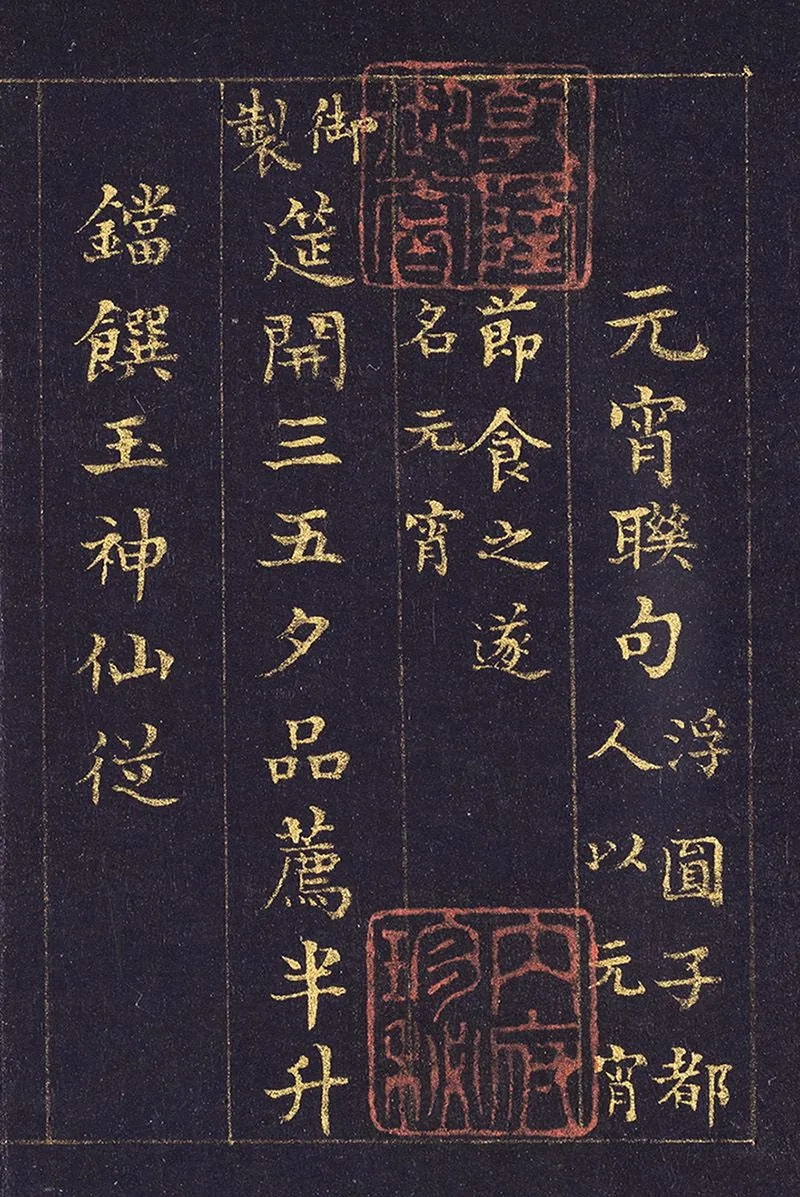 元宵聯句
浮圓子都
人以元宵
節食之遂
名元宵
御製
筵開三五夕品薦半升
鐺饌玉神仙從
乾隆
內府珍祕